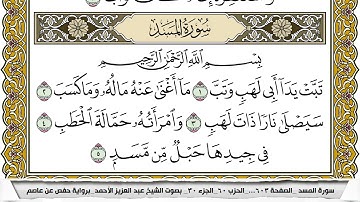 سُورَةُ المَسَدِ
بِسْمِ اللَّهِ الرَّحْمَٰنِ الرَّحِيمِ
تَبَّتْ يَدَا أَبِي لَهَبٍ وَتَبَّ ١ مَا أَغْنَىٰ عَنْهُ مَالُهُ وَمَا كَسَبَ ٢
سَيَصْلَىٰ نَارًا ذَاتَ لَهَبٍ ٣ وَامْرَأَتُهُ حَمَّالَةَ الْحَطَبِ ٤
فِي جِيدِهَا حَبْلٌ مِّن مَّسَدٍ ٥
سورة المسد _الصفحة ٦٠٣_ الحزب ٦٠_الجزء ٣٠_ بصوت الشيخ عبد العزيز الأحمد_برواية حفص عن عاصم